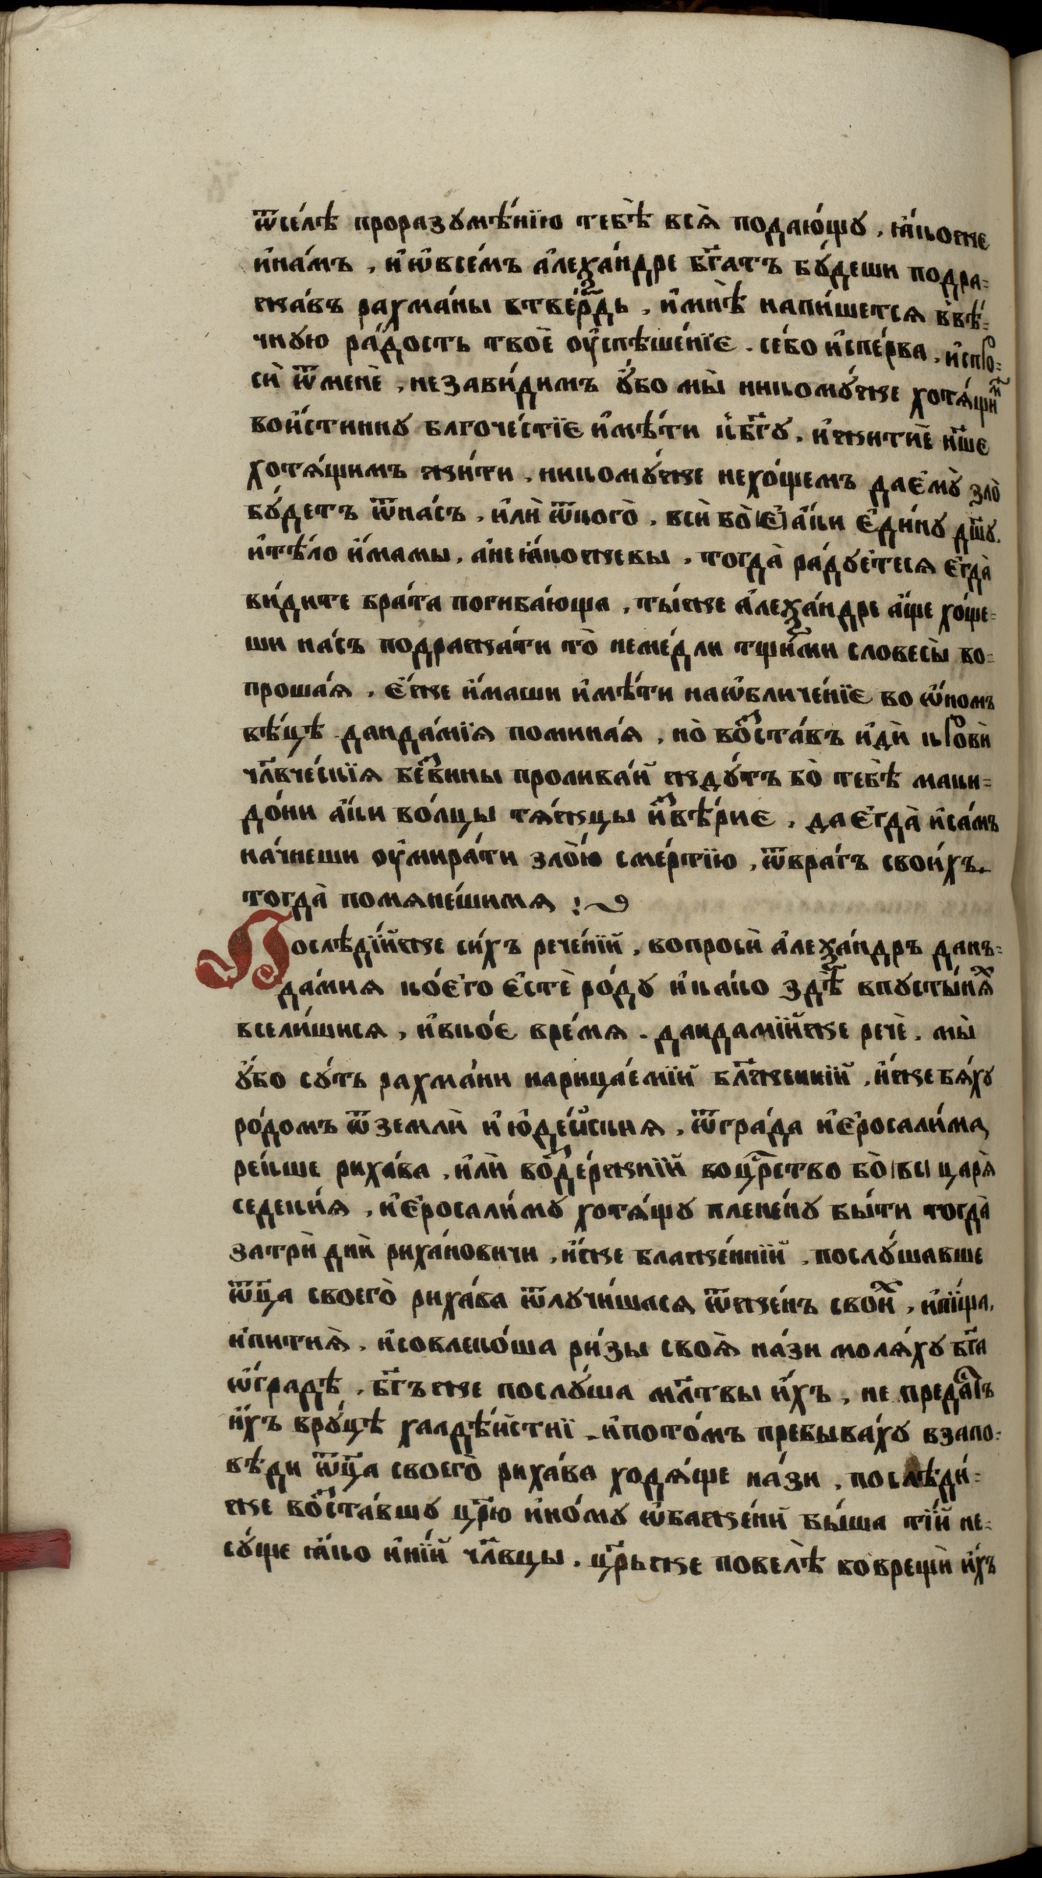 ѿселѣ проразумѣ́нїю тебѣ̀ всѧ̀ подаю́щу , ꙗ҆́коже
и҆на́мъ , и҆ѡ҆все́мъ а҆леѯа́ндре бг҃атъ бу́деши подра-
жа́въ рахма́ны втве́рдь , и҆мнѣ̀ напи́шетсѧ ввѣ́-
чную ра́дость твоѐ ѹ҆спѣше́нїе . се́бо и҆спе́рва , и҆спро-
сѝ ѿменѐ , незави́димъ ѹ҆́бо мы̀ никому́же хотѧ́щим
вои́стинну благоче́стїе и҆мѣ́ти к̾бг҃у , и҆житиѐ на́ше
хотѧ́щимъ жи́ти , никому́же нехо́щемъ дае҆му̀ зло̀
бу́детъ ѿна́съ , и҆лѝ ѿкого̀ . всѝ бо̀ е҆ а҆́ки е҆ди́ну дш҃у .
и҆тѣ́ло и҆́мамы , а҆не ꙗ҆́коже вы , тогда̀ ра́дуетесѧ е҆гда̀
ви́дите бра́та погиба́юща , ты́же а҆леѯа́ндре а҆́ще хо́ще-
ши на́съ подража́ти то̀ неме́дли тщи́ми словесы̀ во-
проша́ѧ . е҆́же и҆́маши и҆мѣ́ти наѡ҆бличе́нїе во ѡ҆́номъ
вѣ́цѣ дандамїѧ помина́ѧ , но̀ воста́въ и҆дѝ крови
чл҃вческїѧ безвины пролива́й ждутъ бо̀ тебѣ̀ маки-
до́ни а҆́ки во́лцы тѧ́жцы и҆ѕвѣ́рие , дае҆гда̀ и҆са́мъ
на́чнеши ѹ҆мира́ти зло́ю сме́ртїю , ѿвра́гъ свои́хъ .
тогда̀ помѧне́шимѧ :~
Послѣдїи́же си́хъ рече́нїй , вопросѝ а҆леѯа́ндръ данъ-
да́миѧ ко́его е҆стѐ ро́ду и҆ ка́ко здѣ̀ впусты́нѧх
всели́шисѧ , и҆вко́е вре́мѧ . дандамі́йже речѐ . мы̀
ѹ҆́бо су́ть рахма́ни нарица́емїй бл҃женнїй , и҆́же бѧ́ху
ро́домъ ѿземлѝ и҆ю҆де́йскиѧ , ѿгра́да и҆є҆росали́ма
ре́кше риха́ва , и҆лѝ воздержнїй воцр҃ство бо̀ всі царѧ̀
седекиѧ , и҆є҆росали́му хотѧ́щу плене́ну бы́ти тогда̀
затрѝ днѝ риха́новичи , и҆́же блаже́ннїй , послу́шавше
ѿц҃а своего̀ риха́ва ѿлучи́шасѧ ѿже́нъ свои́х , и҆пи́ща ,
и҆питиѧ̀ , и҆совлеко́ша ри́зы своѧ̀ на́зи молѧ́ху бг҃а
ѡ҆гра́дѣ , бг҃ъ же послу́ша мл҃твы и҆́хъ , не преда́лъ
и҆́хъ вру́цѣ халдѣ́йстїи . и҆пото́мъ пребыва́ху взапо-
вѣди ѿц҃а своего̀ риха́ва ходѧ́ще на́зи , послѣди́-
же воста́вшу цр҃ю и҆но́му ѡ҆баже́ни бы́ша ті́й не-
су́ще ꙗ҆́ко и҆ні́й чл҃вцы . цр҃ьже повелѣ̀ воврещѝ и҆́хъ